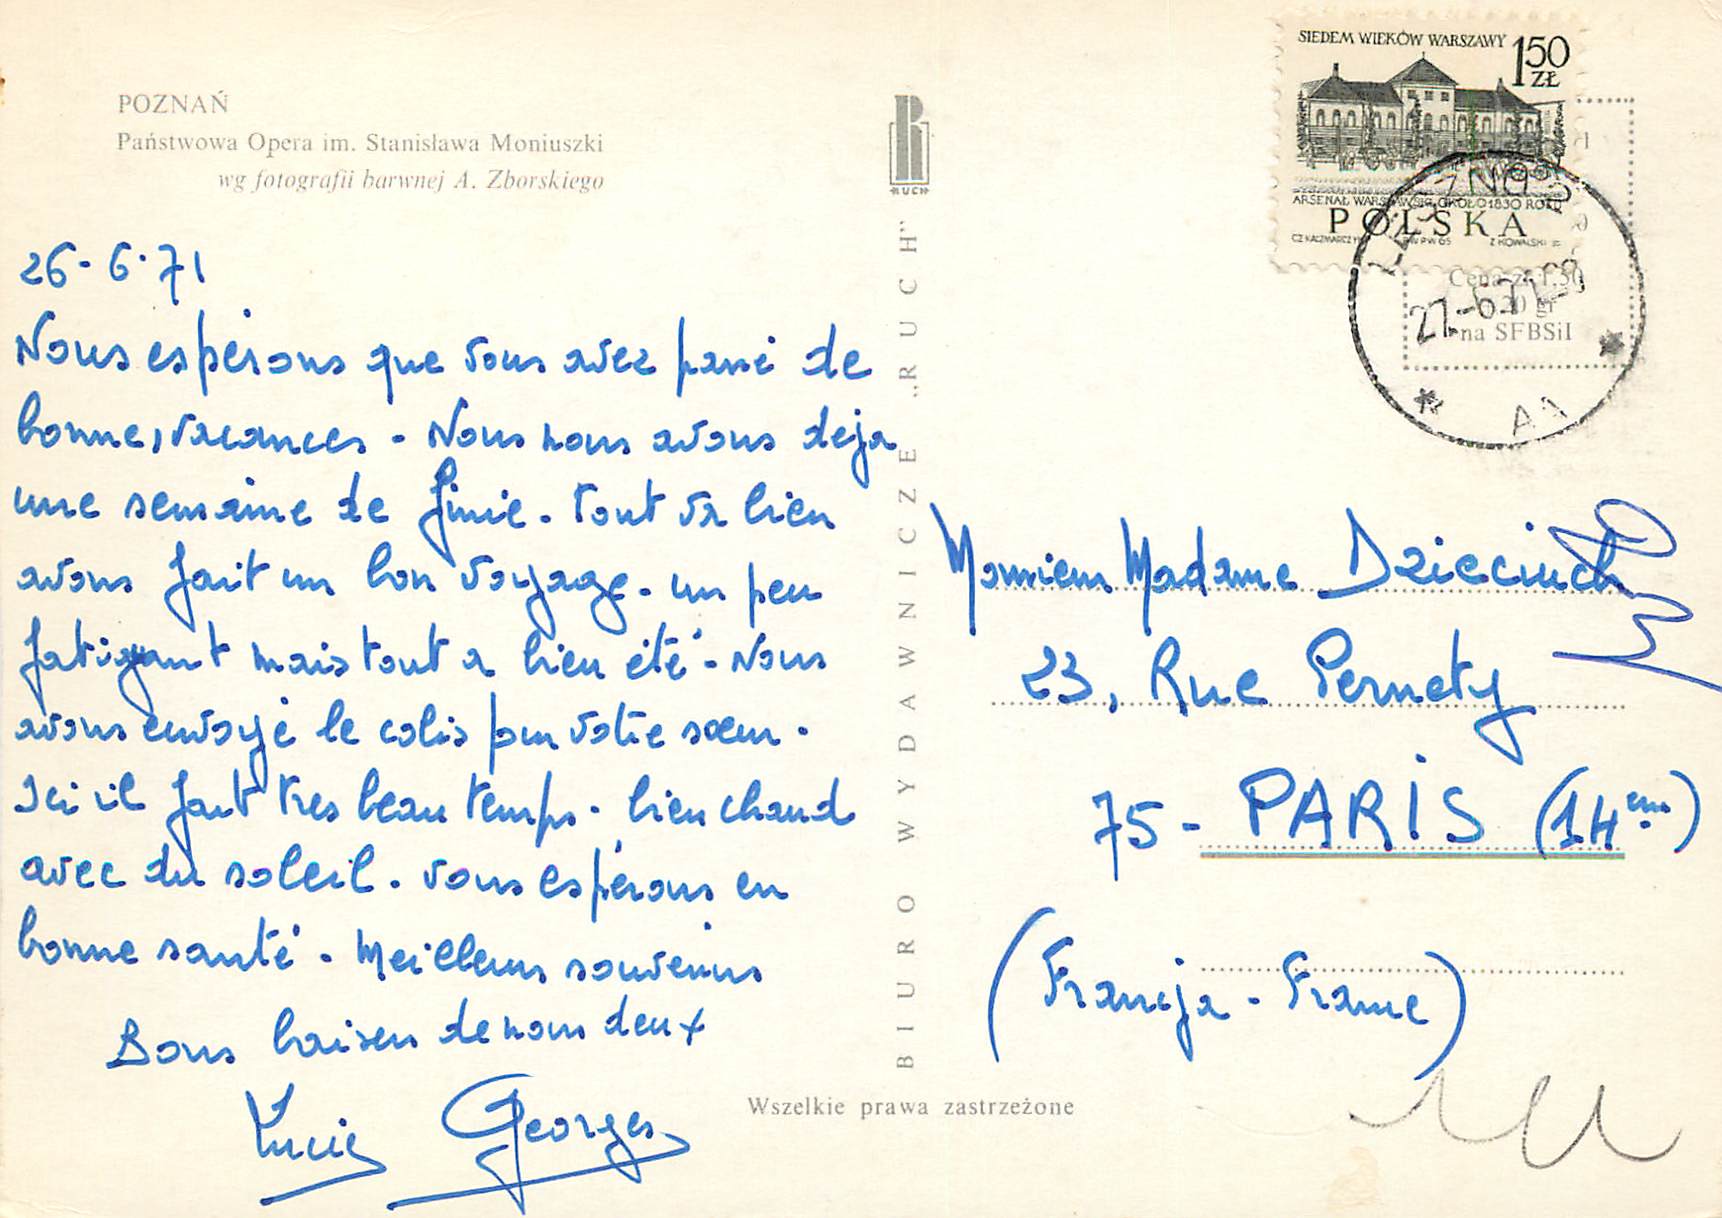 POZNAŃ
Państwowa Opera im. Stanisława Moniuszki
wg fotografii barwnej A. Zborskiego
26-6-71
Nous espérons que vous avez passé de
bonnes vacances - Nous nous avons deja
une semaine de finie. tout va bien
avons fait un bon voyage. un peu
fatiguant mais tout a bien été - Nous
avons envoyé le colis pour votre sœur.
Ici il fait très beau temps. bien chaud
avec du soleil. vous espérons en
bonne santé. Meilleurs souvenirs
Bons baisers de nous deux
Lucie Georges
RUCH
BIURO WYDAWNICZE „RUCH”
Wszelkie prawa zastrzeżone
SIEDEM WIEKÓW WARSZAWY
1,50 ZŁ
ARSENAŁ WARSZAWSKI OKOŁO 1830 ROKU
POLSKA
Cena zł 1,50
20 gr
na SFBSiI
27-6.71-
A1
Monsieur Madame Dzieciuch
23, Rue Pernety
75 - PARIS (14eme)
(Francja - France)